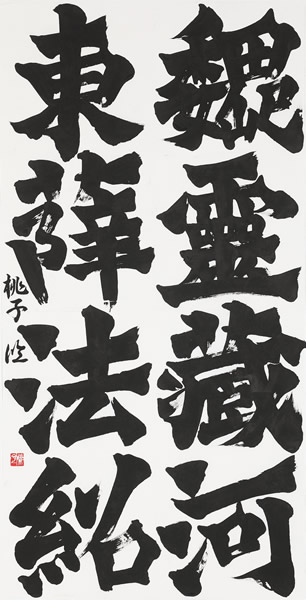 魏靈藏河
東薛法紹
桃子臨